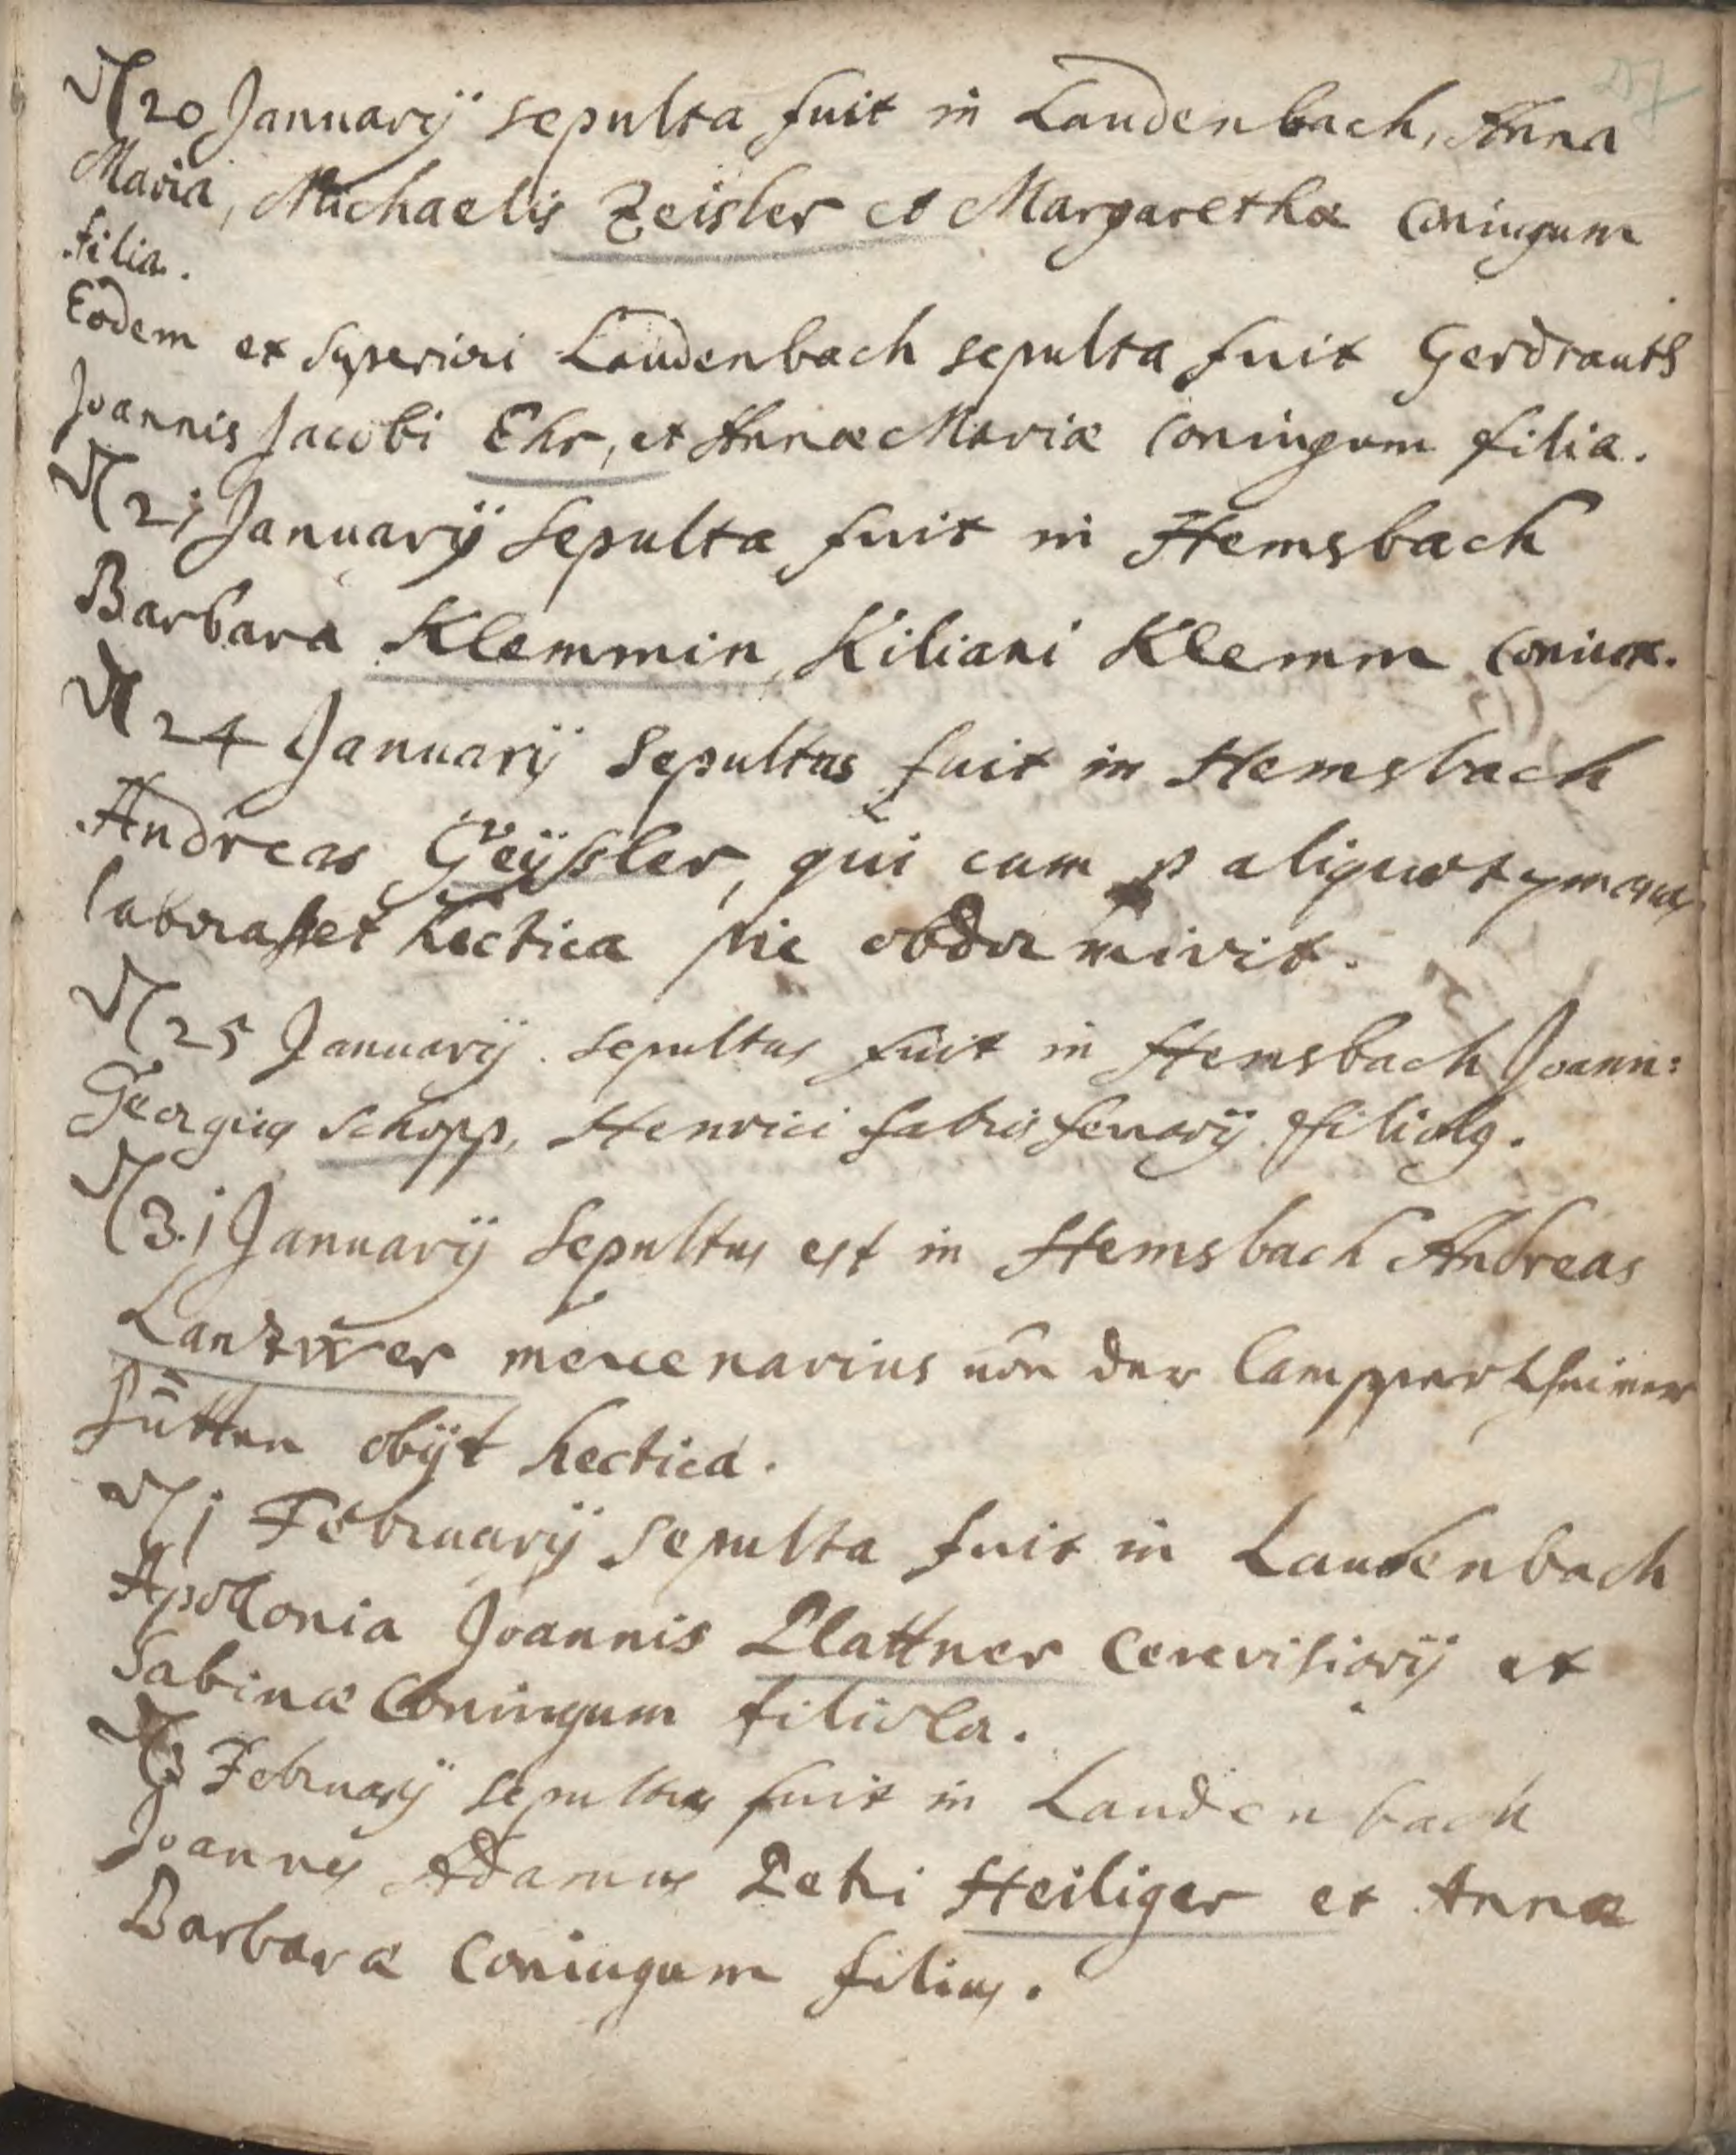 20 Januarÿ sepulta fuit in Laudenbach, Anna
Maria, Michaelis Zeisler et Margarethæ Coniugum
filia.
Eodem ex Superiori Laudenbach sepulta fuit Gerdrauth
Joannis Jacobi Ehr, et Annæ Mariæ Coniugum filia.
21 Januarÿ Sepulta fuit in Hemsbach
Barbara Klemmin, Kiliani Klemm Coniux.
24 Januarÿ Sepultus fuit in Hemsbach
Andreas Geÿssler, qui cum p aliquot
laborasset hectica pie obdormivit.
25 Januarÿ sepultus fuit in Hemsbach Joann:
Georgius Schopp, Henrici fabri ferrarÿ filiolus.
31 Januarÿ Sepultus est in Hemsbach Andreas
Lanzwer mercenarius von der Lamppertheimer
hütten obÿt hectica.
1 Februarÿ sepulta fuit in Laudenbach
Apollonia Joannis Plattner Cerevisiarÿ et
Sabinæ Coniugum filiola.
3 Februarÿ sepultus fuit in Laudenbach
Joannes Adamus Petri Heiliger et Annæ
Barbaræ Coniugum filius.